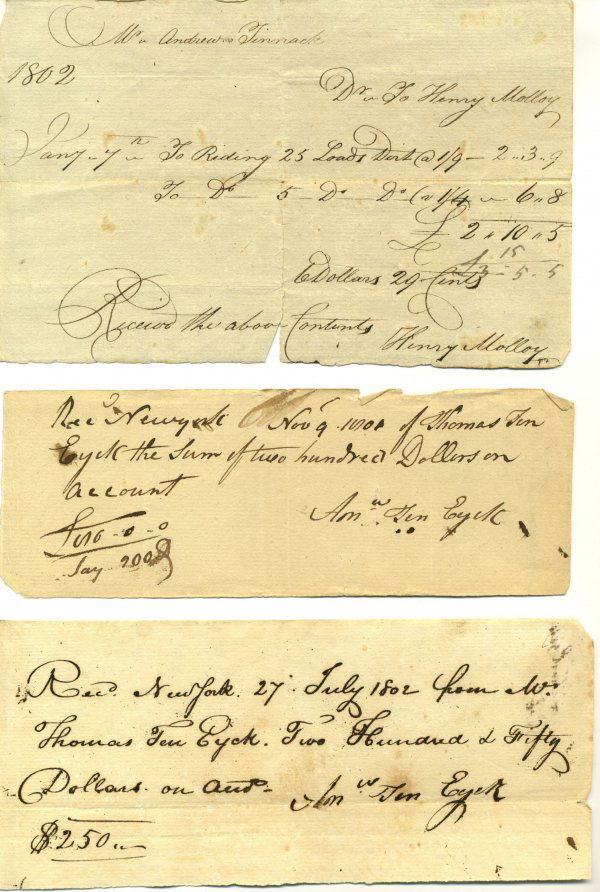 Mr Andrew Tinnack
1802
Dr To Henry Molloy
Jany 7th To Riding 25 Loads Dirt @ 1/9 — 2 " 3 " 9
To Do 5 Do Do @ 1/4 — 6 " 8
£ 2 " 10 " 5
15
5 - 5
6 Dollars 29 Cents
Receivd the above Contents
Henry Molloy
Recd Newyork Nov 9 1801 of Thomas Ten
Eyck the Sum of two hundred Dollers on
account
Anw Ten Eyck
- 0 - 0
Say 200$
Recd. New York. 27 July 1802 from Mr.
Thomas Ten Eyck. Two Hundred & Fifty
Dollars on
Anw Ten Eyck
$250